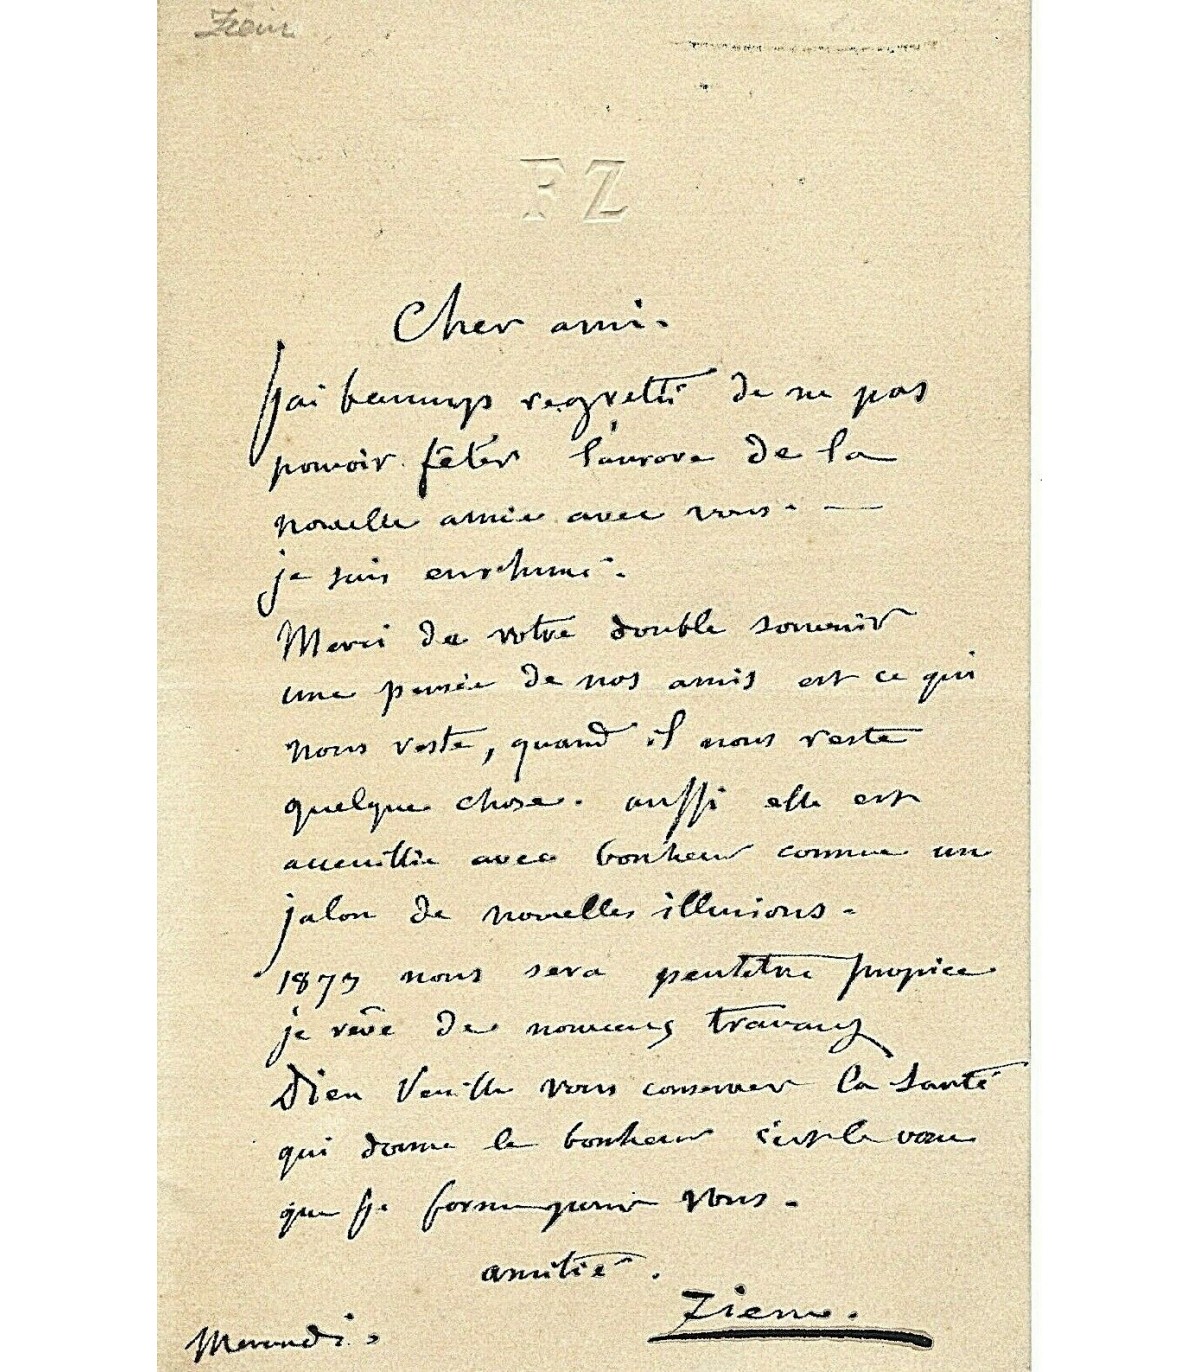 Ziem
F Z
Cher ami.
j'ai beaucoup regretté de ne pas
pouvoir fêter l'aurore de la
nouvelle année avec vous. —
je suis enrhumé.
Merci de votre double souvenir
une pensée de nos amis est ce qui
nous reste, quand il nous reste
quelque chose. aussi elle est
accueillie avec bonheur comme un
jalon de nouvelles illusions.
1873 nous sera peutêtre propice
je rêve de nouveaux travaux
Dieu veuille vous conserver la santé
qui donne le bonheur c'est le vœu
que je forme pour vous.
amitié.
Ziem.
Mercredi.